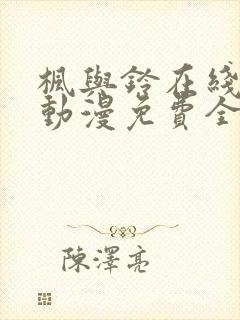 楓與鈴在綫
動漫免費全
陳澤亮